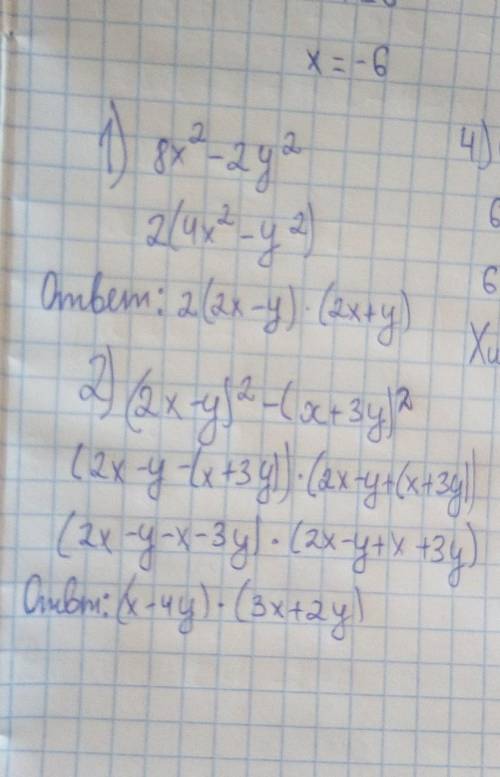 x = -6
1) 8x² - 2y²
2(4x² - y²)
Ответ: 2(2x - y) · (2x + y)
2) (2x - y)² - (x + 3y)²
(2x - y - (x + 3y)) · (2x - y + (x + 3y))
(2x - y - x - 3y) · (2x - y + x + 3y)
Отвт: (x - 4y) · (3x + 2y)
4)
6
6